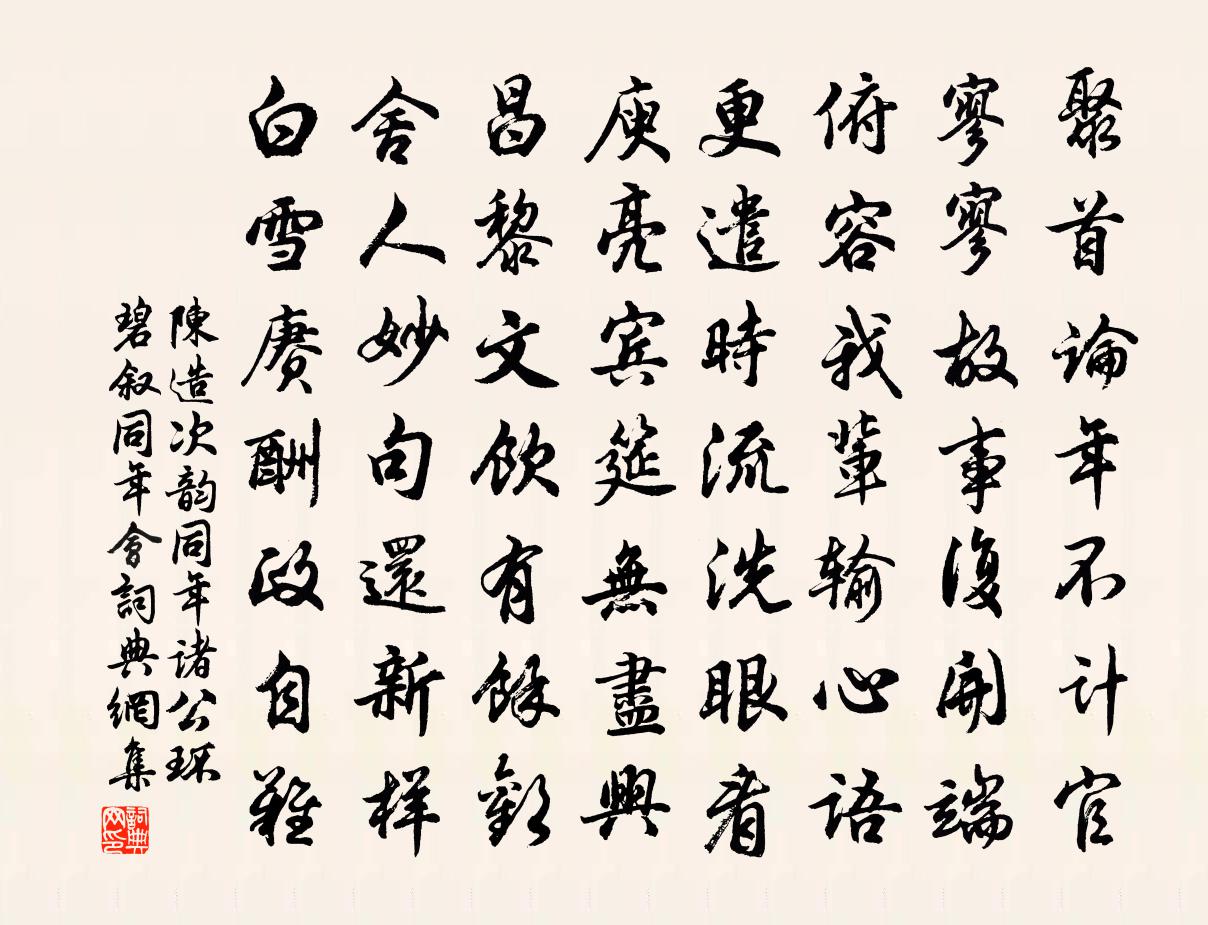 聚首論年不計官
寥寥故事復開端
俯容我輩輸心語
更遣時流洗眼看
庾亮賓筵無盡興
昌黎文飲有餘歡
舍人妙句還新样
白雪赓酬政自難
陳造次韵同年诸公环
碧叙同年會詞典網集
詞典网印